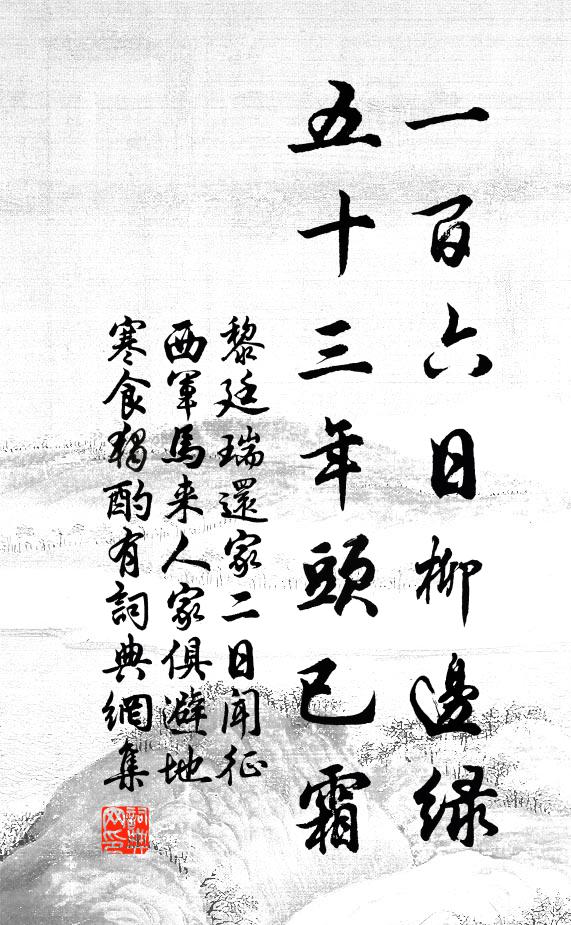 一百六日柳邊緑
五十三年頭已霜
黎廷瑞還家二日聞征
西軍馬来人家俱避地
寒食獨酌有詞典網集